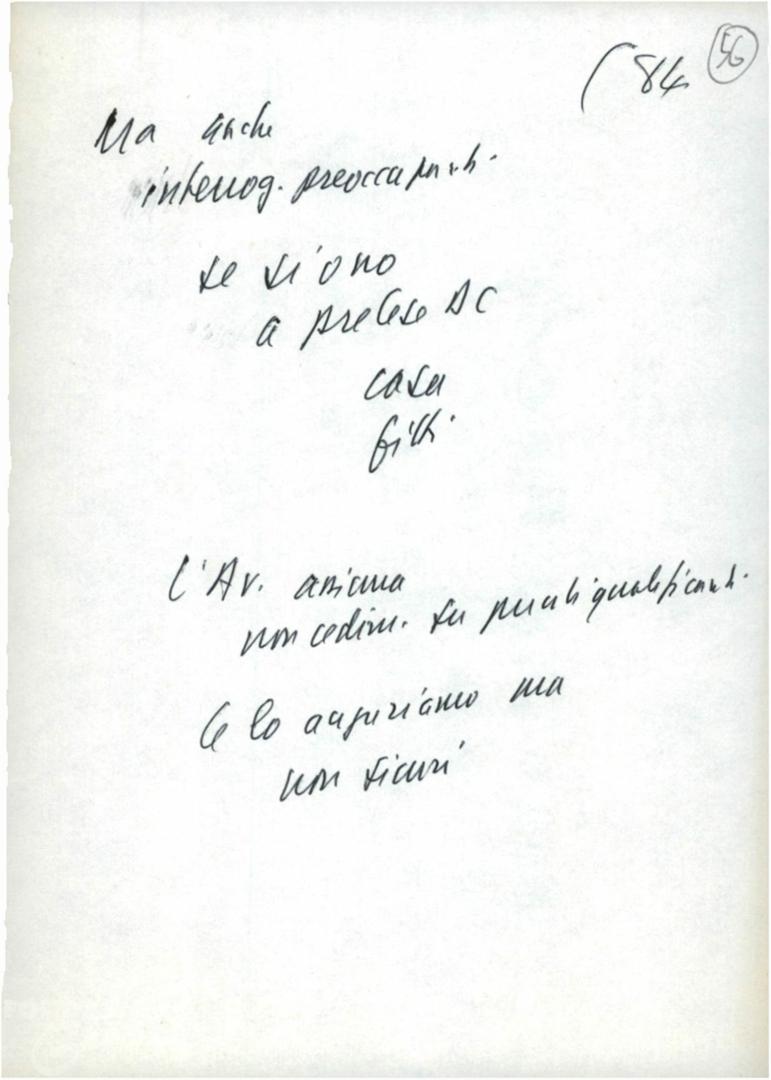 56
( 84
Ma anche
interrog. preoccupanti.
se sì o no
a pretese DC
casa
fitti
l'Av. assicura
non cedim. su punti qualificanti.
Ce lo auguriamo ma
non sicuri